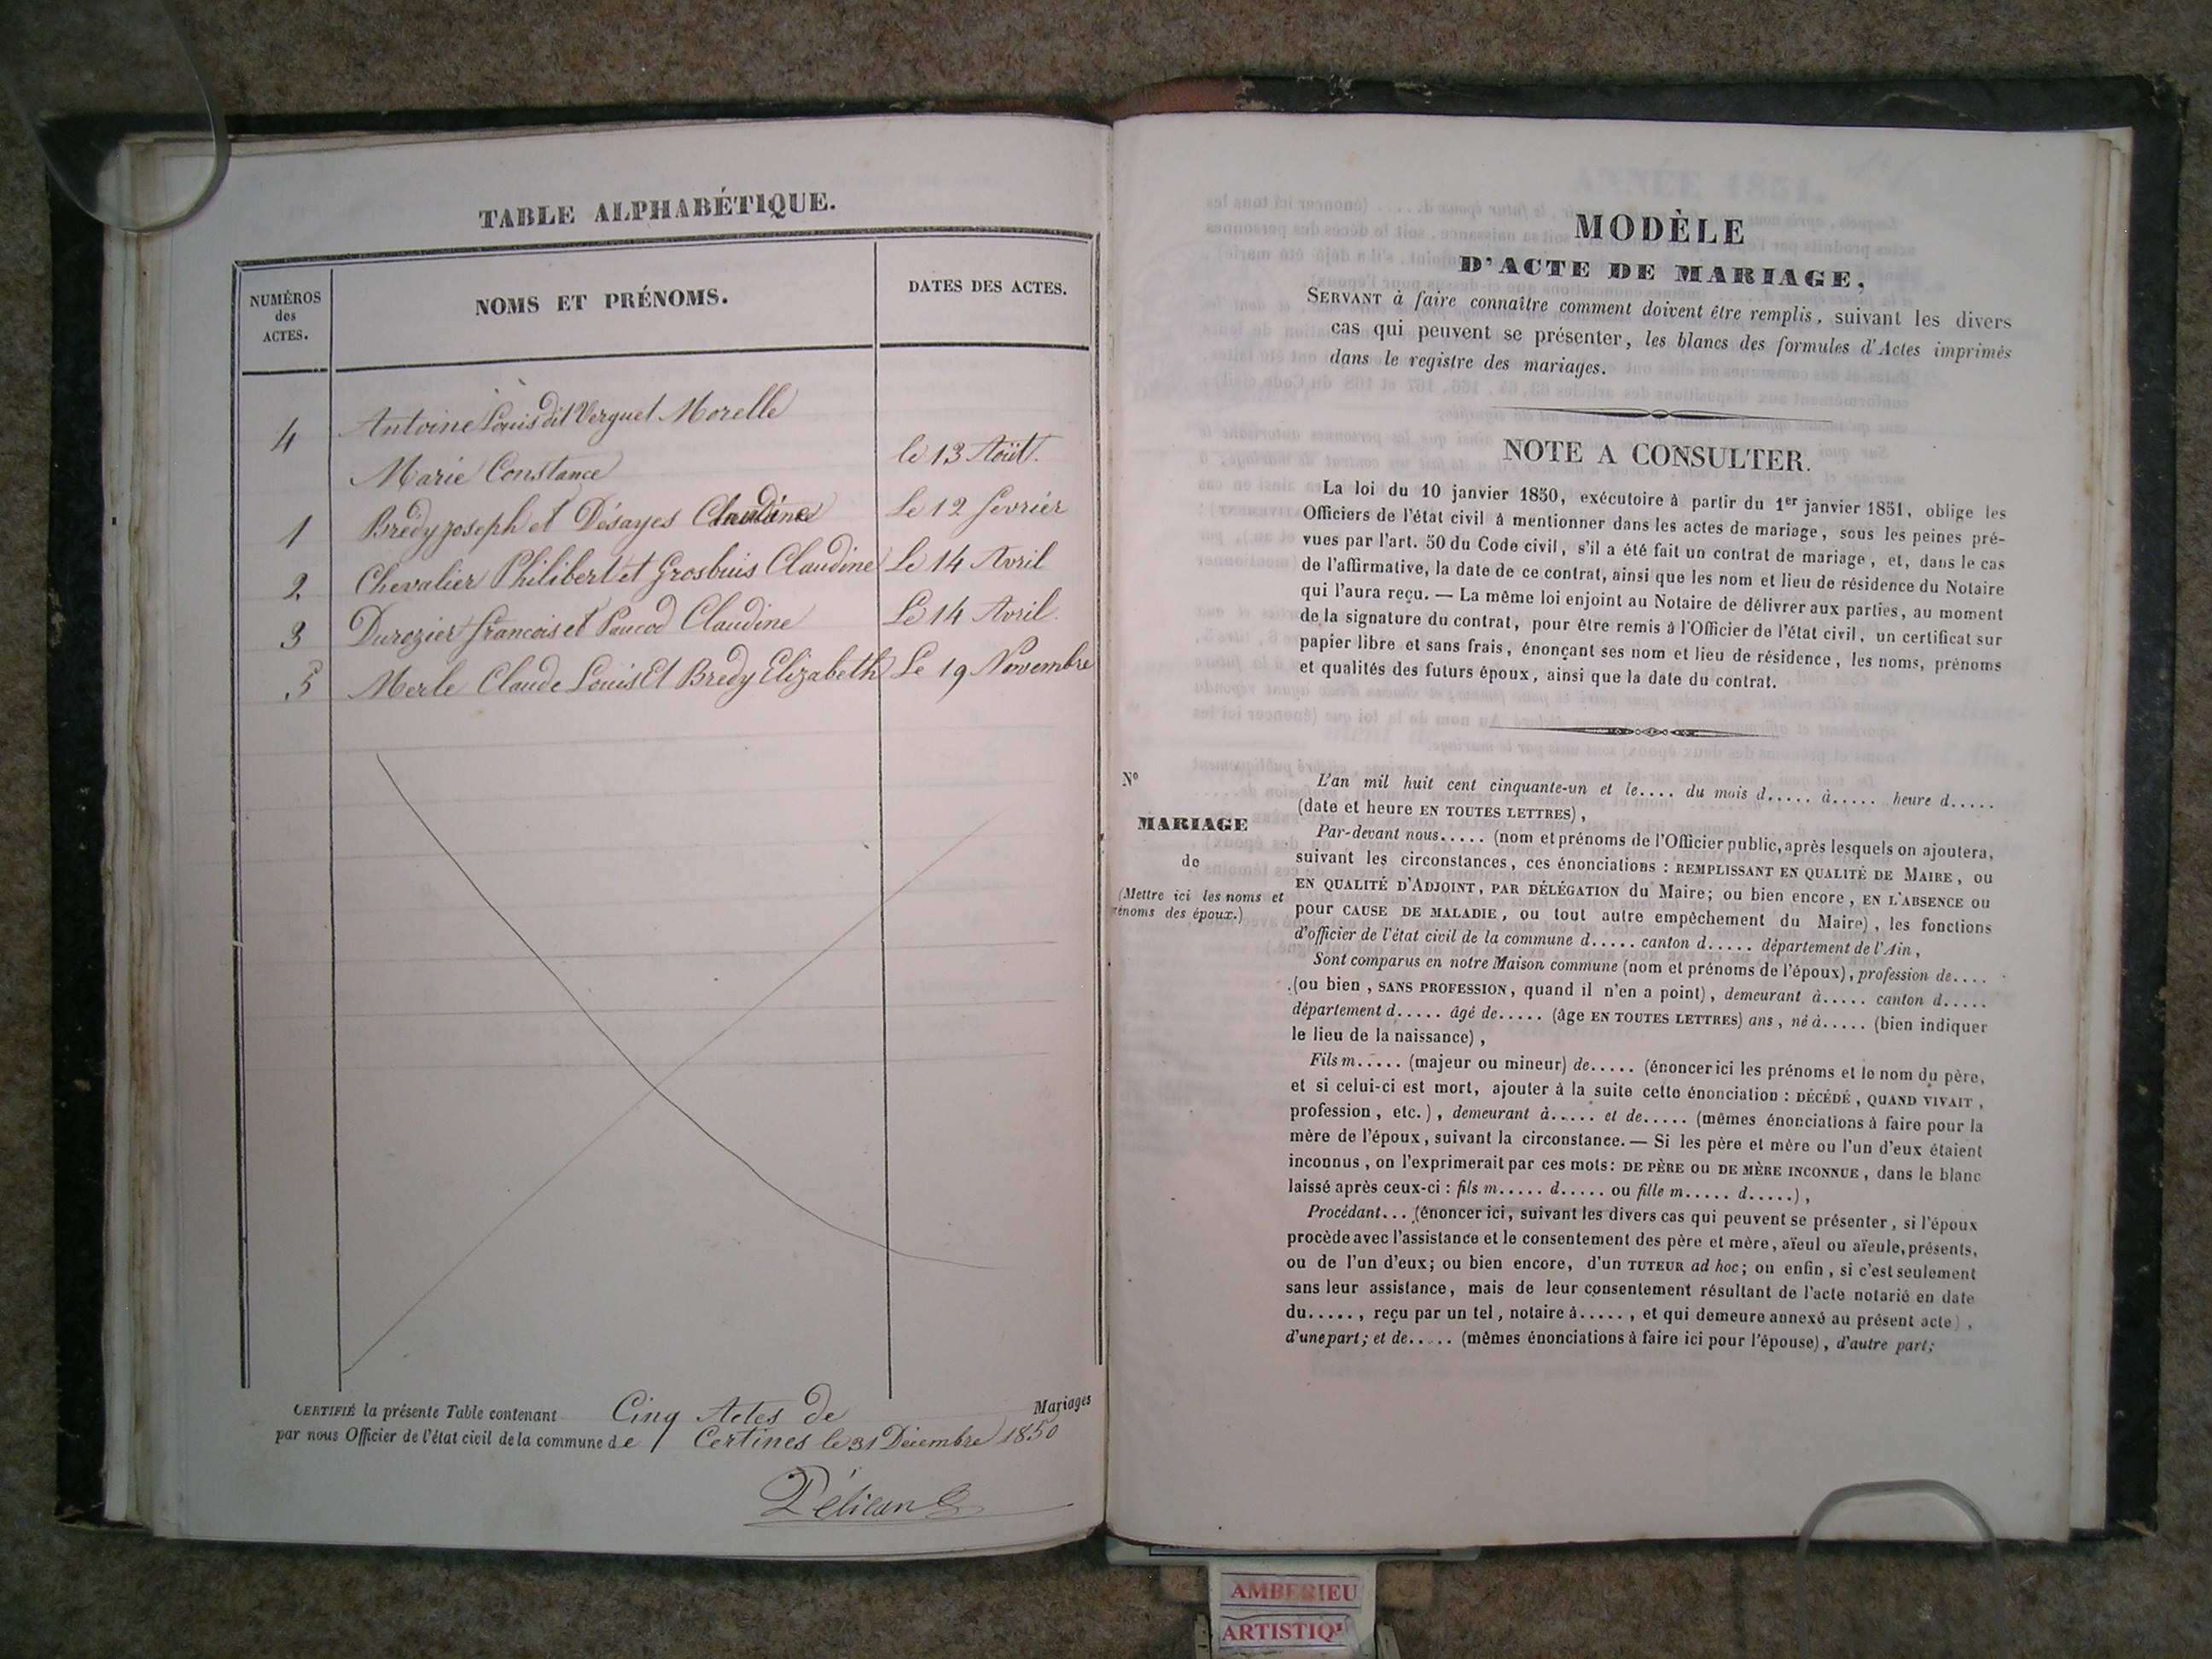 TABLE ALPHABÉTIQUE.
NUMÉROS
des
ACTES.
NOMS ET PRÉNOMS.
DATES DES ACTES.
4 Antoine Louis dit Verguet Morelle
Marie Constance le 13 Août.
1 Bredy joseph et Désayes Claudine Le 12 fevrier
2 Chevalier Philibert et Grosbuis Claudine Le 14 Avril
3 Durozier francois et Paucod Claudine Le 14 Avril.
5 Merle Claude Louis Et Bredy Elizabeth Le 19 Novembre
CERTIFIÉ la présente Table contenant Cinq Actes de Mariages
par nous Officier de l'état civil de la commune de Certines le 31 Décembre 1850
MODÈLE
D'ACTE DE MARIAGE,
SERVANT à faire connaître comment doivent être remplis, suivant les divers
cas qui peuvent se présenter, les blancs des formules d'Actes imprimés
dans le registre des mariages.
NOTE A CONSULTER.
La loi du 10 janvier 1850, exécutoire à partir du 1er janvier 1851, oblige les
Officiers de l'état civil à mentionner dans les actes de mariage, sous les peines pré-
vues par l'art. 50 du Code civil, s'il a été fait un contrat de mariage, et, dans le cas
de l'affirmative, la date de ce contrat, ainsi que les nom et lieu de résidence du Notaire
qui l'aura reçu. — La même loi enjoint au Notaire de délivrer aux parties, au moment
de la signature du contrat, pour être remis à l'Officier de l'état civil, un certificat sur
papier libre et sans frais, énonçant ses nom et lieu de résidence, les noms, prénoms
et qualités des futurs époux, ainsi que la date du contrat.
N°
MARIAGE
de
(Mettre ici les noms et
rénoms des époux.)
L'an mil huit cent cinquante-un et le.... du mois d..... à..... heure d.....
(date et heure EN TOUTES LETTRES),
Par-devant nous..... (nom et prénoms de l'Officier public, après lesquels on ajoutera,
suivant les circonstances, ces énonciations : REMPLISSANT EN QUALITÉ DE MAIRE, ou
EN QUALITÉ D'ADJOINT, PAR DÉLÉGATION du Maire; ou bien encore, EN L'ABSENCE ou
pour CAUSE DE MALADIE, ou tout autre empêchement du Maire), les fonctions
d'officier de l'état civil de la commune d..... canton d..... département de l'Ain,
Sont comparus en notre Maison commune (nom et prénoms de l'époux), profession de....
(ou bien, SANS PROFESSION, quand il n'en a point), demeurant à..... canton d.....
département d..... âgé de..... (âge EN TOUTES LETTRES) ans, né à..... (bien indiquer
le lieu de la naissance),
Fils m..... (majeur ou mineur) de..... (énoncer ici les prénoms et le nom du père,
et si celui-ci est mort, ajouter à la suite cette énonciation : DÉCÉDÉ, QUAND VIVAIT,
profession, etc.), demeurant à..... et de..... (mêmes énonciations à faire pour la
mère de l'époux, suivant la circonstance. — Si les père et mère ou l'un d'eux étaient
inconnus, on l'exprimerait par ces mots : DE PÈRE ou DE MÈRE INCONNUE, dans le blanc
laissé après ceux-ci : fils m..... d..... ou fille m..... d.....),
Procédant... (énoncer ici, suivant les divers cas qui peuvent se présenter, si l'époux
procède avec l'assistance et le consentement des père et mère, aïeul ou aïeule, présents,
ou de l'un d'eux; ou bien encore, d'un TUTEUR ad hoc; ou enfin, si c'est seulement
sans leur assistance, mais de leur consentement résultant de l'acte notarié en date
du....., reçu par un tel, notaire à....., et qui demeure annexé au présent acte),
d'une part; et de..... (mêmes énonciations à faire ici pour l'épouse), d'autre part;
AMBERIEU
ARTISTIQ